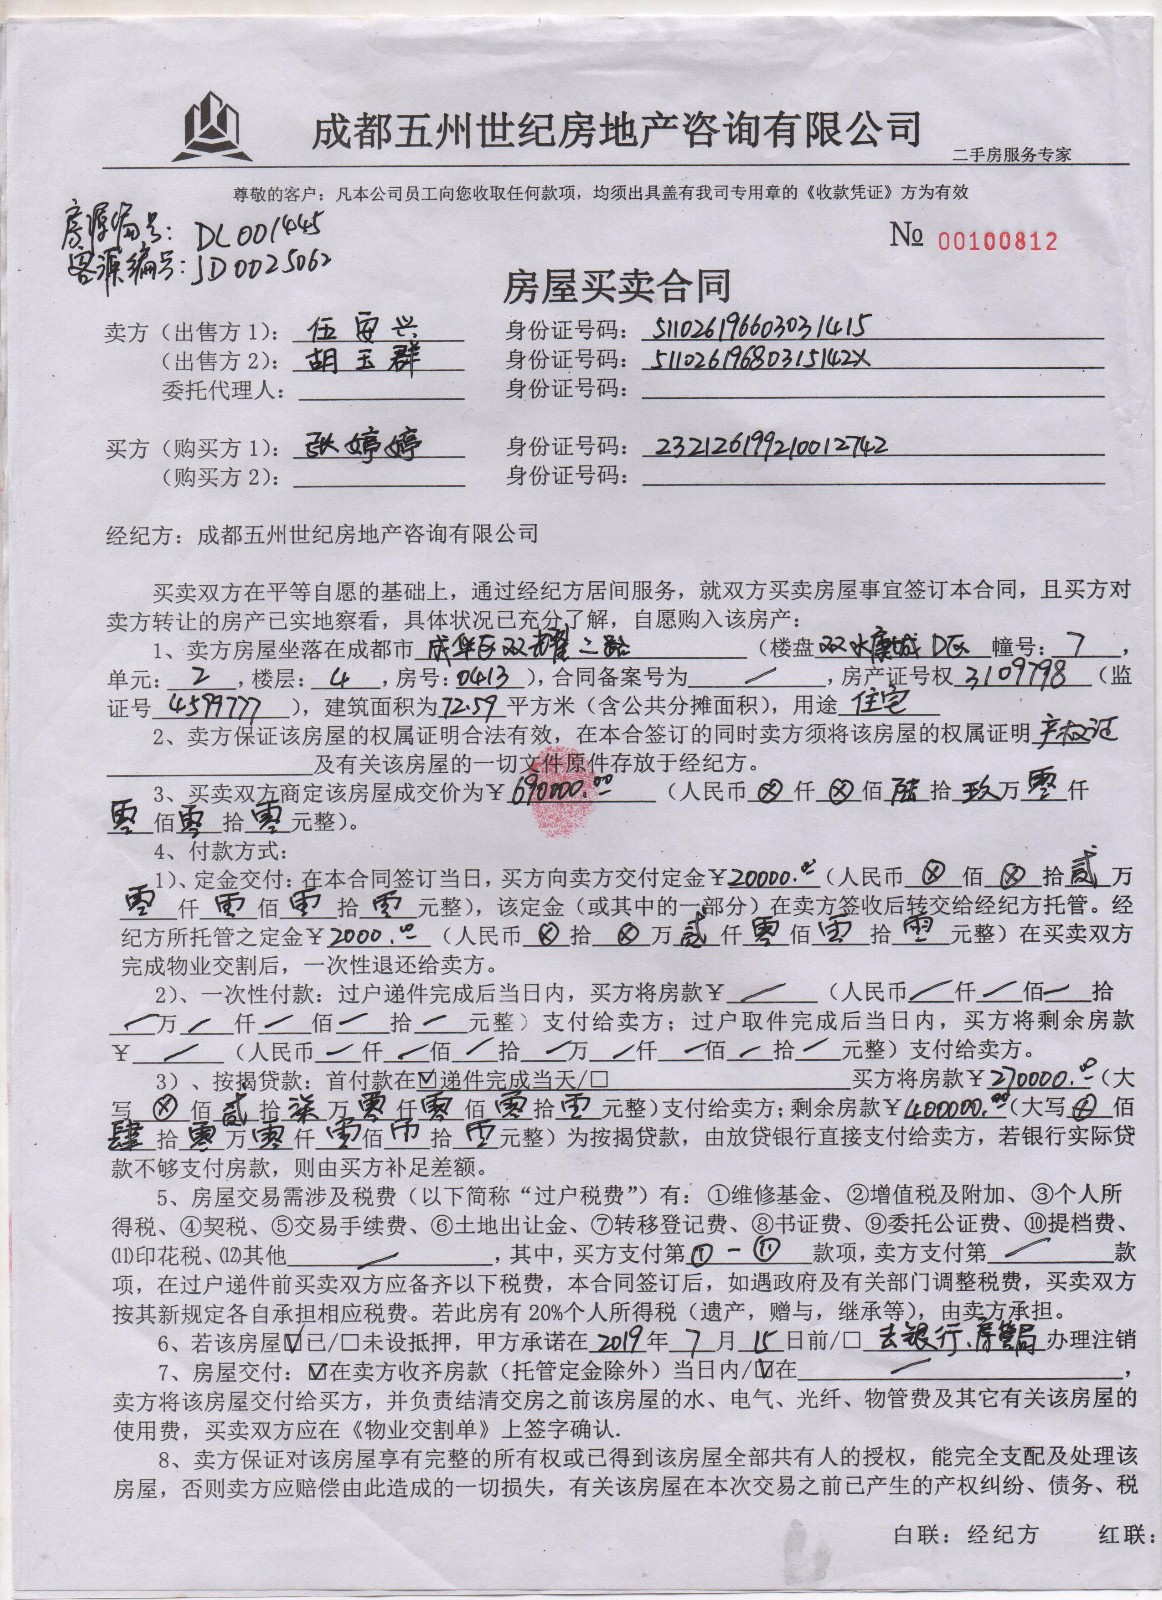 成都五州世纪房地产咨询有限公司
二手房服务专家
尊敬的客户：凡本公司员工向您收取任何款项，均须出具盖有我司专用章的《收款凭证》方为有效
房源编号：DL001445
客源编号：JD0025062
№ 00100812
房屋买卖合同
卖方（出售方1）：伍安兴 身份证号码：511026196603031415
（出售方2）：胡玉群 身份证号码：51102619680315142X
委托代理人： 身份证号码：
买方（购买方1）：张婷婷 身份证号码：232126199210012742
（购买方2）： 身份证号码：
经纪方：成都五州世纪房地产咨询有限公司
买卖双方在平等自愿的基础上，通过经纪方居间服务，就双方买卖房屋事宜签订本合同，且买方对
卖方转让的房产已实地察看，具体状况已充分了解，自愿购入该房产：
1、卖方房屋坐落在成都市 成华区双耀二路 （楼盘 双水康城D区 幢号：7，
单元：2，楼层：4，房号：0413），合同备案号为 / ，房产证号权 3109798（监
证号 4599777 ），建筑面积为72.59平方米（含公共分摊面积），用途 住宅
2、卖方保证该房屋的权属证明合法有效，在本合签订的同时卖方须将该房屋的权属证明 产权证
及有关该房屋的一切文件原件存放于经纪方。
3、买卖双方商定该房屋成交价为￥690000.00（人民币⊗仟⊗佰陆拾玖万零仟
零佰零拾零元整）。
4、付款方式：
1）、定金交付：在本合同签订当日，买方向卖方交付定金￥20000.00（人民币⊗佰⊗拾贰万
零仟零佰零拾零元整），该定金（或其中的一部分）在卖方签收后转交给经纪方托管。经
纪方所托管之定金￥2000.00（人民币⊗拾⊗万贰仟零佰零拾零元整）在买卖双方
完成物业交割后，一次性退还给卖方。
2）、一次性付款：过户递件完成后当日内，买方将房款￥ / （人民币/仟/佰/拾
/万/仟/佰/拾/元整）支付给卖方；过户取件完成后当日内，买方将剩余房款
￥ / （人民币/仟/佰/拾/万/仟/佰/拾/元整）支付给卖方。
3）、按揭贷款：首付款在☑递件完成当天/□ 买方将房款￥270000.00（大
写⊗佰贰拾柒万零仟零佰零拾零元整）支付给卖方；剩余房款￥400000.00（大写⊗佰
肆拾零万零仟零佰零拾零元整）为按揭贷款，由放贷银行直接支付给卖方，若银行实际贷
款不够支付房款，则由买方补足差额。
5、房屋交易需涉及税费（以下简称“过户税费”）有：①维修基金、②增值税及附加、③个人所
得税、④契税、⑤交易手续费、⑥土地出让金、⑦转移登记费、⑧书证费、⑨委托公证费、⑩提档费、
⑾印花税、⑿其他 / ，其中，买方支付第①-⑪款项，卖方支付第 / 款
项，在过户递件前买卖双方应备齐以下税费，本合同签订后，如遇政府及有关部门调整税费，买卖双方
按其新规定各自承担相应税费。若此房有20%个人所得税（遗产，赠与，继承等），由卖方承担。
6、若该房屋☑已/□未设抵押，甲方承诺在2019年7月15日前/□ 去银行、房管局 办理注销
7、房屋交付：☑在卖方收齐房款（托管定金除外）当日内/☑在 / ，
卖方将该房屋交付给买方，并负责结清交房之前该房屋的水、电气、光纤、物管费及其它有关该房屋的
使用费，买卖双方应在《物业交割单》上签字确认.
8、卖方保证对该房屋享有完整的所有权或已得到该房屋全部共有人的授权，能完全支配及处理该
房屋，否则卖方应赔偿由此造成的一切损失，有关该房屋在本次交易之前已产生的产权纠纷、债务、税
白联：经纪方 红联：